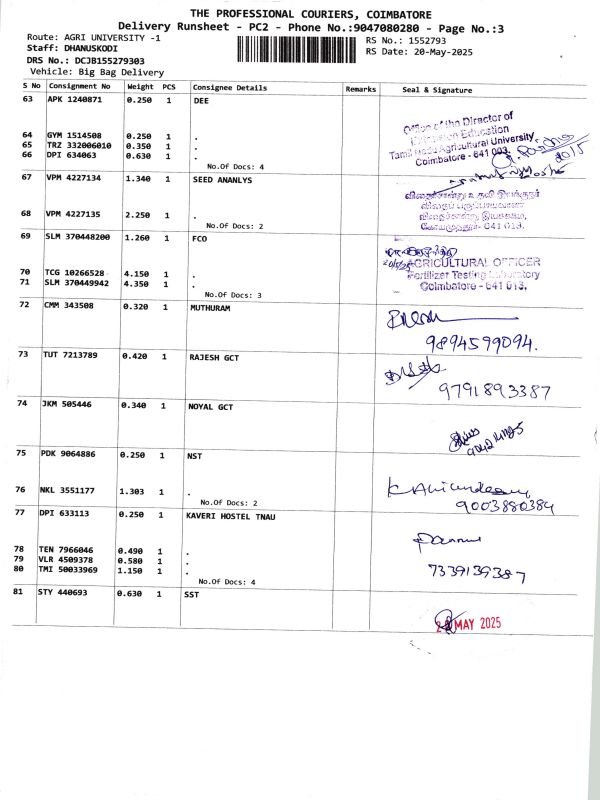 THE PROFESSIONAL COURIERS, COIMBATORE
Delivery Runsheet - PC2 - Phone No.:9047080280 - Page No.:3
Route: AGRI UNIVERSITY -1
Staff: DHANUSKODI
DRS No.: DCJB155279303
Vehicle: Big Bag Delivery
RS No.: 1552793
RS Date: 20-May-2025
S No Consignment No Weight PCS Consignee Details Remarks Seal & Signature
63 APK 1240871 0.250 1 DEE
64 GYM 1514508 0.250 1 .
65 TRZ 332006010 0.350 1 .
66 DPI 634063 0.630 1 .
No.Of Docs: 4
Office of the Director of
Extension Education
Tamil Nadu Agricultural University
Coimbatore - 641 003.
67 VPM 4227134 1.340 1 SEED ANANLYS
68 VPM 4227135 2.250 1 .
No.Of Docs: 2
விதைச்சான்று உதவி இயக்குநர்
கோயமுத்தூர் - 641 013.
69 SLM 370448200 1.260 1 FCO
70 TCG 10266528 4.150 1 .
71 SLM 370449942 4.350 1 .
No.Of Docs: 3
AGRICULTURAL OFFICER
Fertilizer Testing Laboratory
Coimbatore - 641 013.
72 CMM 343508 0.320 1 MUTHURAM
9894599094.
73 TUT 7213789 0.420 1 RAJESH GCT
9791893387
74 JKM 505446 0.340 1 NOYAL GCT
75 PDK 9064886 0.250 1 NST
76 NKL 3551177 1.303 1 .
No.Of Docs: 2
9003880384
77 DPI 633113 0.250 1 KAVERI HOSTEL TNAU
78 TEN 7966046 0.490 1 .
79 VLR 4509378 0.580 1 .
80 TMI 50033969 1.150 1 .
No.Of Docs: 4
7339139387
81 STY 440693 0.630 1 SST
MAY 2025